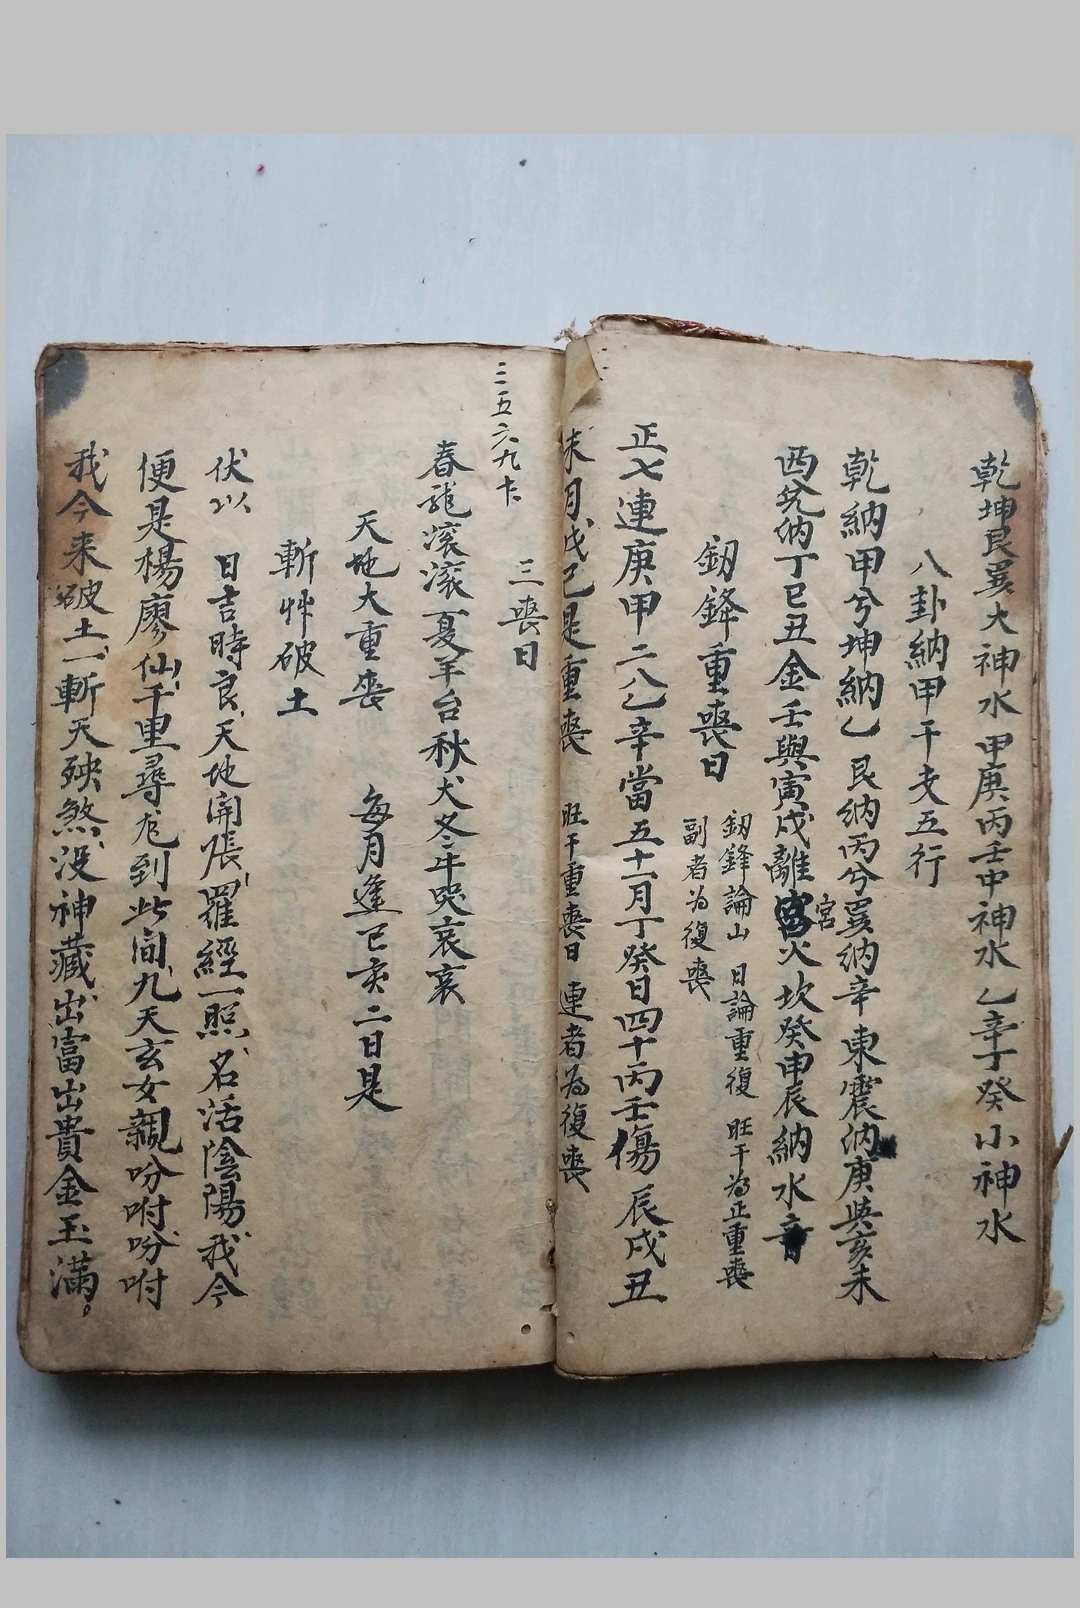 乾坤艮巽大神水甲庚丙壬中神水乙辛丁癸小神水
八卦納甲干支五行
乾納甲兮坤納乙艮纳丙兮巽纳辛東震纳庚與亥未
西兌纳丁巳丑金壬與寅戌離宮火坎癸申辰納水音
宮
釰鋒重喪日
釰鋒論山日論重復旺干為正重喪
副者为復喪
正七連庚甲二八乙辛當五十一月丁癸日四十丙壬傷辰戌丑
未月戊己是重喪旺干重喪日連者为復喪
三喪日
三五六九
春龍滚滚夏羊台秋犬冬牛哭哀哀
天地大重喪每月逢巳亥二日是
斬艸破土
伏以日吉時良天地開張羅經一照名活陰陽我今
便是楊廖仙千里尋龙到此间九天玄女親吩咐吩咐
我今来破土一斬天殃煞没神藏出富出貴金玉滿。